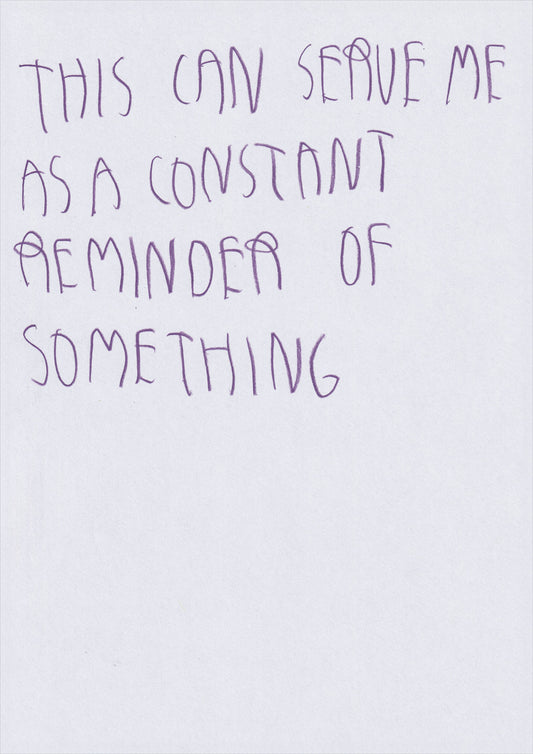 THIS CAN SERVE ME
AS A CONSTANT
REMINDER OF
SOMETHING